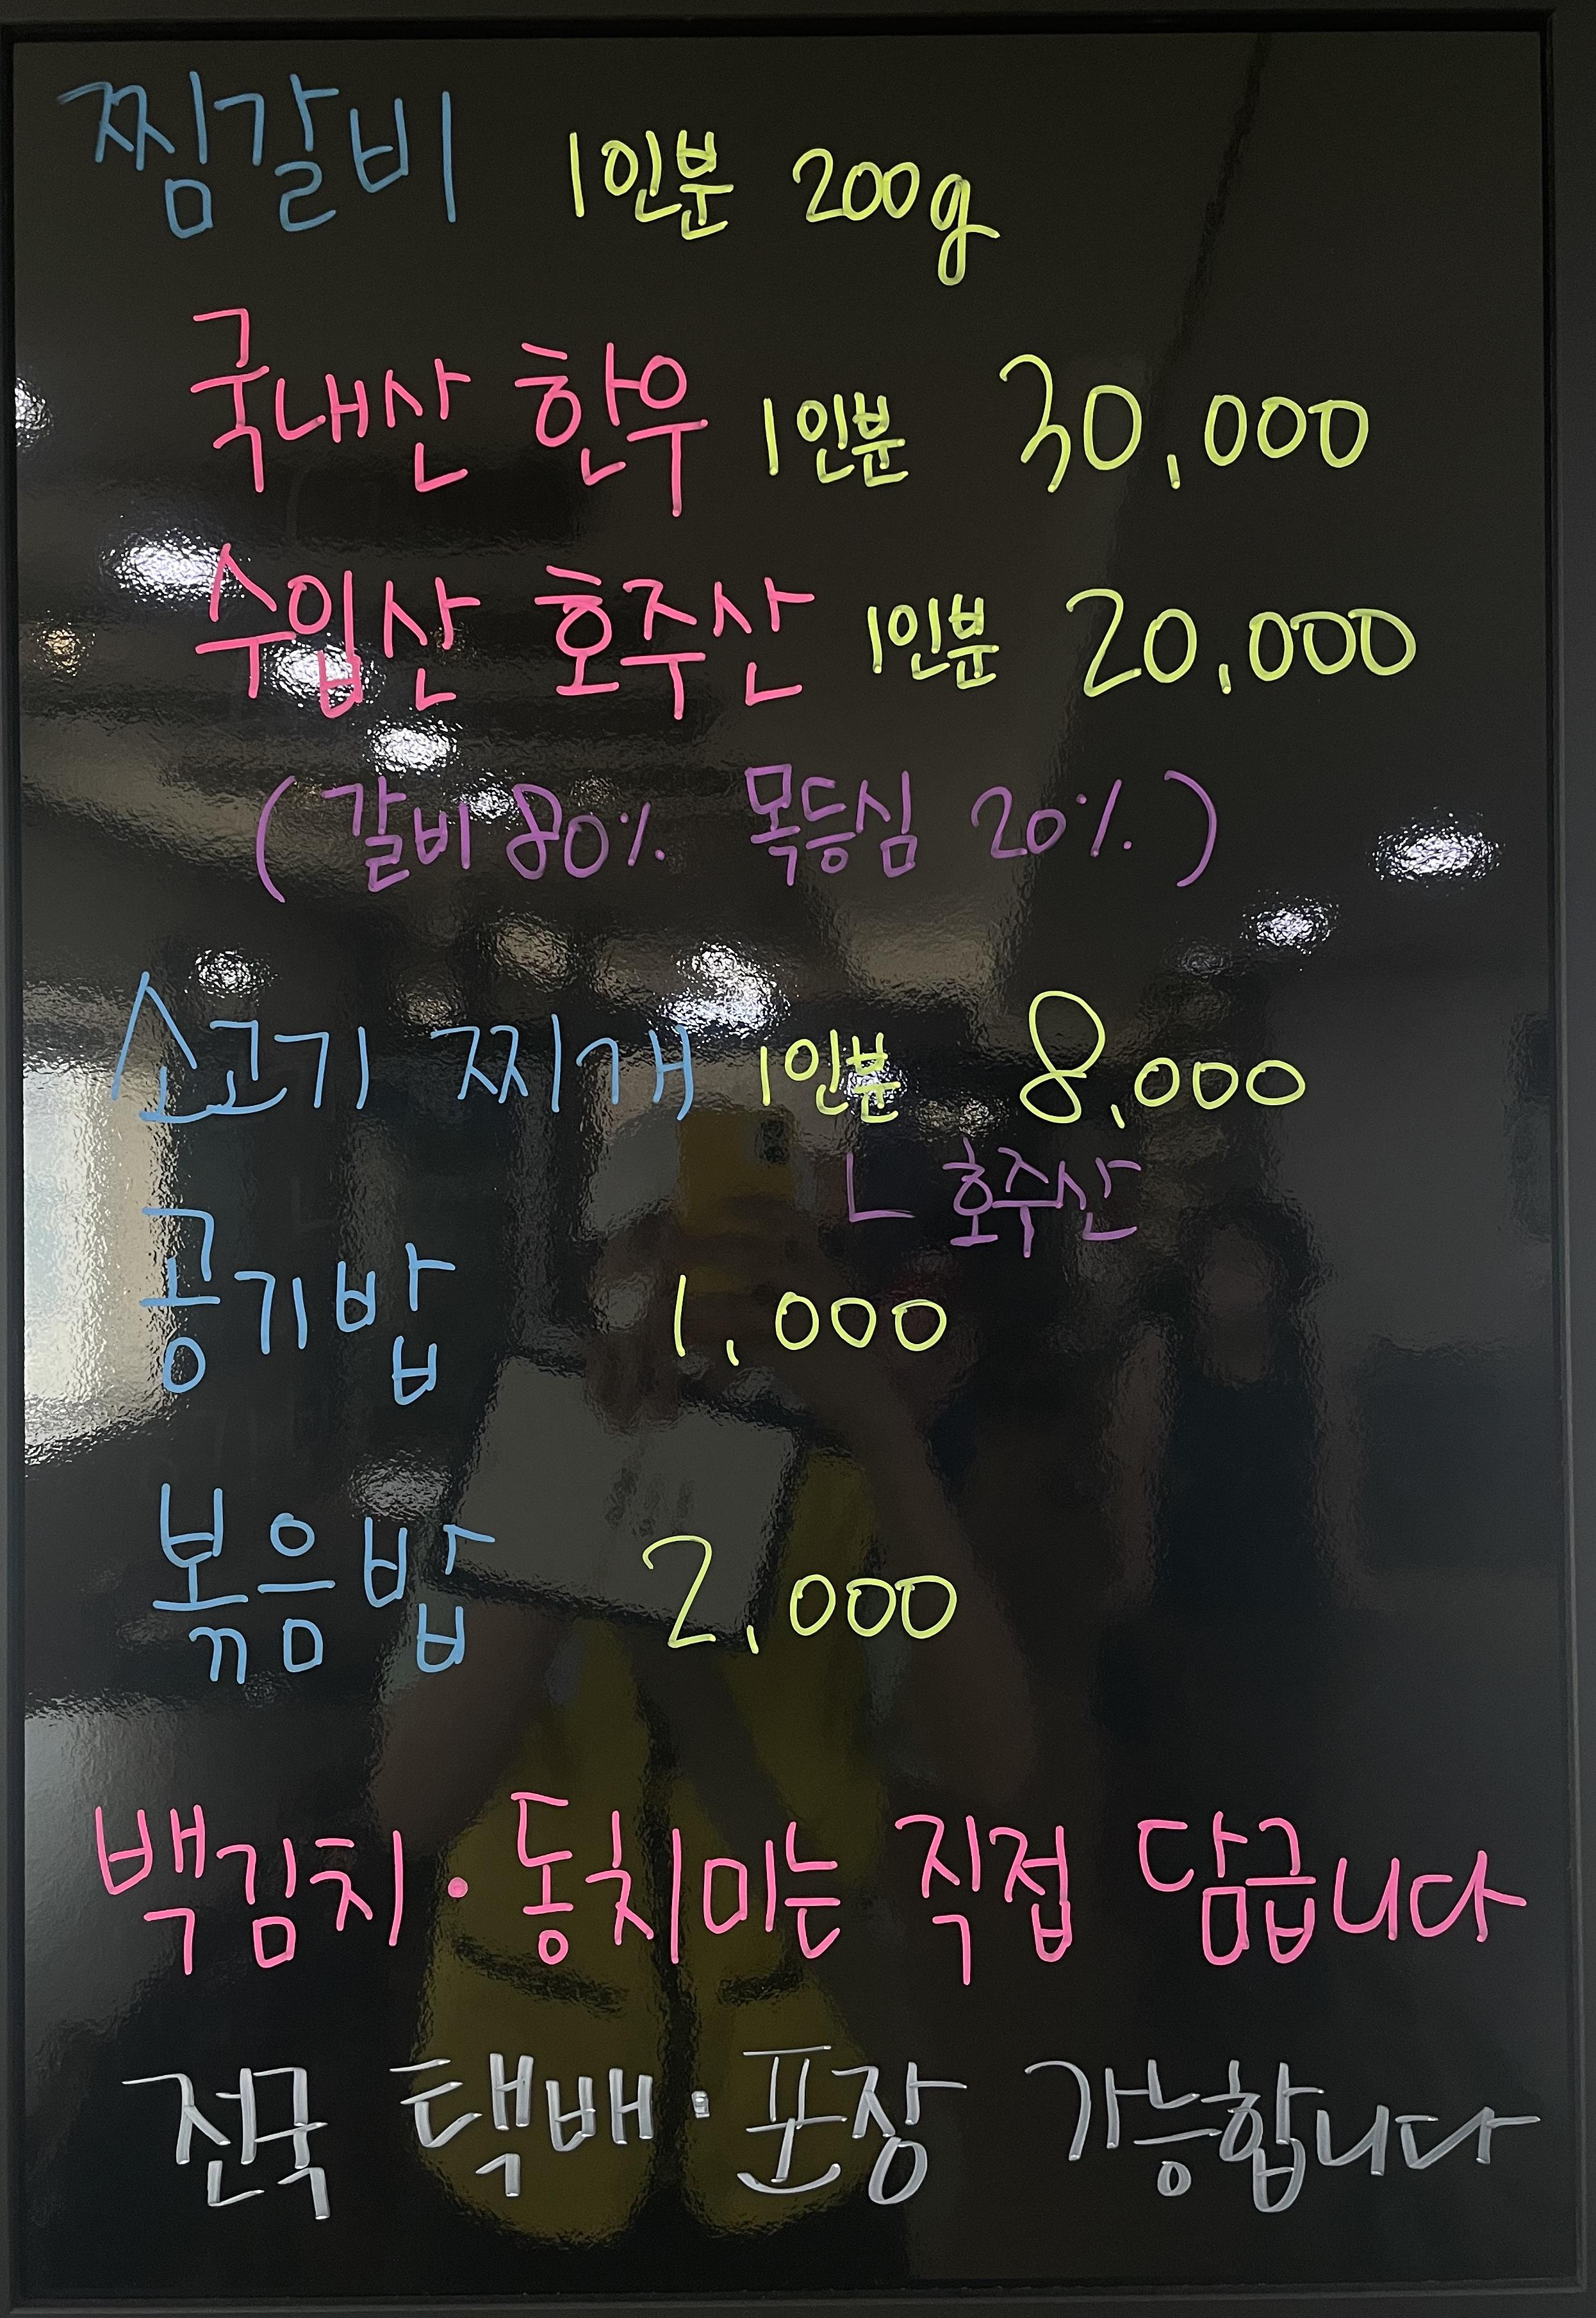 찜갈비 1인분 200g
국내산 한우 1인분 30,000
수입산 호주산 1인분 20,000
(갈비 80% 목등심 20%)
소고기 찌개 1인분 8,000
ㄴ 호주산
공기밥 1,000
볶음밥 2,000
백김치·동치미는 직접 담급니다
전국 택배·포장 가능합니다